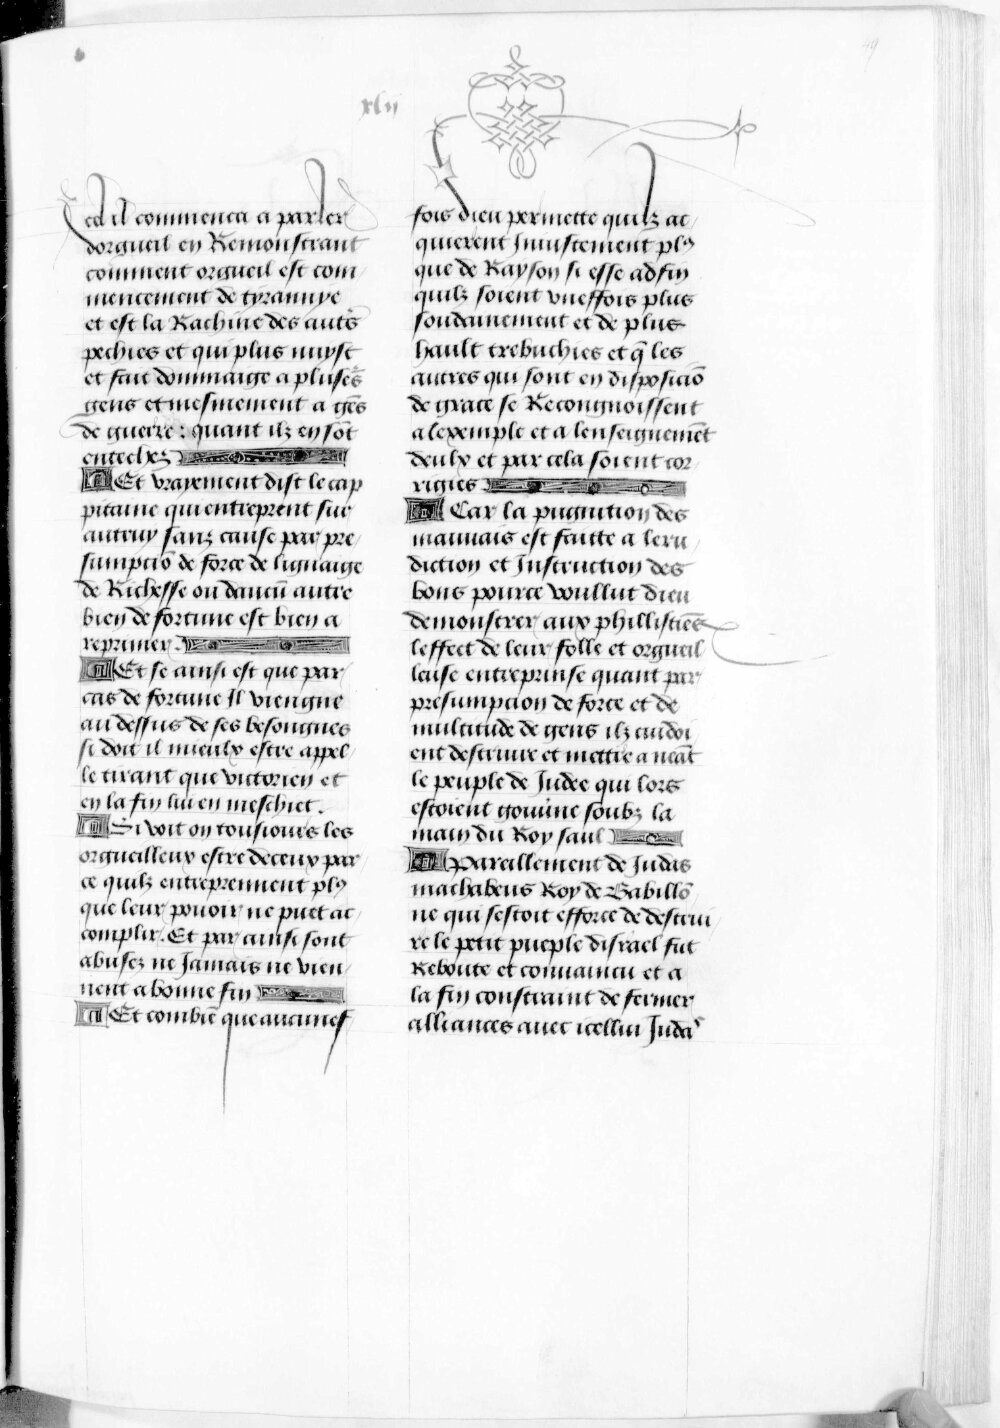 xlij
49
ca il commenca a parler
dorgueil en Remonstrant
comment orgueil est com
mencement de tyrannye
et est la Rachine des autrs
pechies et qui plus nuyst
et fait dommaige a plusers
gens et mesmement a ges
de guerre : quant ilz en sot
entechez
Et vrayement dist le cap
pitaine qui entreprent sur
autruy sanz cause par pre
sumpcio de force de lignaige
de Richesse ou daucu autre
bien de fortune est bien a
reprimer
Et se ainsi est que par
cas de fortune Il viengne
au dessus de ses besongnes
si doit il mieulx estre appel
le tirant que victorien et
en la fin lui en meschiet .
Si voit on tousiours les
orgueilleux estre deceux par
ce quilz entreprennent pl9
que leur pouoir ne puet ac
complir . Et par ainsi sont
abusez ne Jamais ne vien
nent a bonne fin
Et combie que aucunef
fois dieu permette quilz ac
quierent Iniustement pl9
que de Rayson si esse ad fin
quilz soient vneffois plus
soudainement et de plus
hault trebuchies et q les
autres qui sont en disposicio
de grace se Recongnoissent
a lexemple et a lenseignemet
deulx et par cela soient cor
rigies
Car la pugnition des
mauuais est faitte a leru
diction et Instruction des
bons pource voullut dieu
demonstrer aux phillisties
leffect de leur folle et orgueil
leuse entreprinse quant par
presumpcion de force et de
multitude de gens ilz cuidoi
ent destruire et mettre a neat
le peuple de Judee qui lors
estoient gouune soubz la
main du Roy saul
Pareillement de Judas
machabeus Roy de Babillo
ne qui sestoit efforce de destrui
re le petit pueple disrael fut
Reboute et conuaincu et a
la fin constraint de fermer
alliances auec icellui Juda9